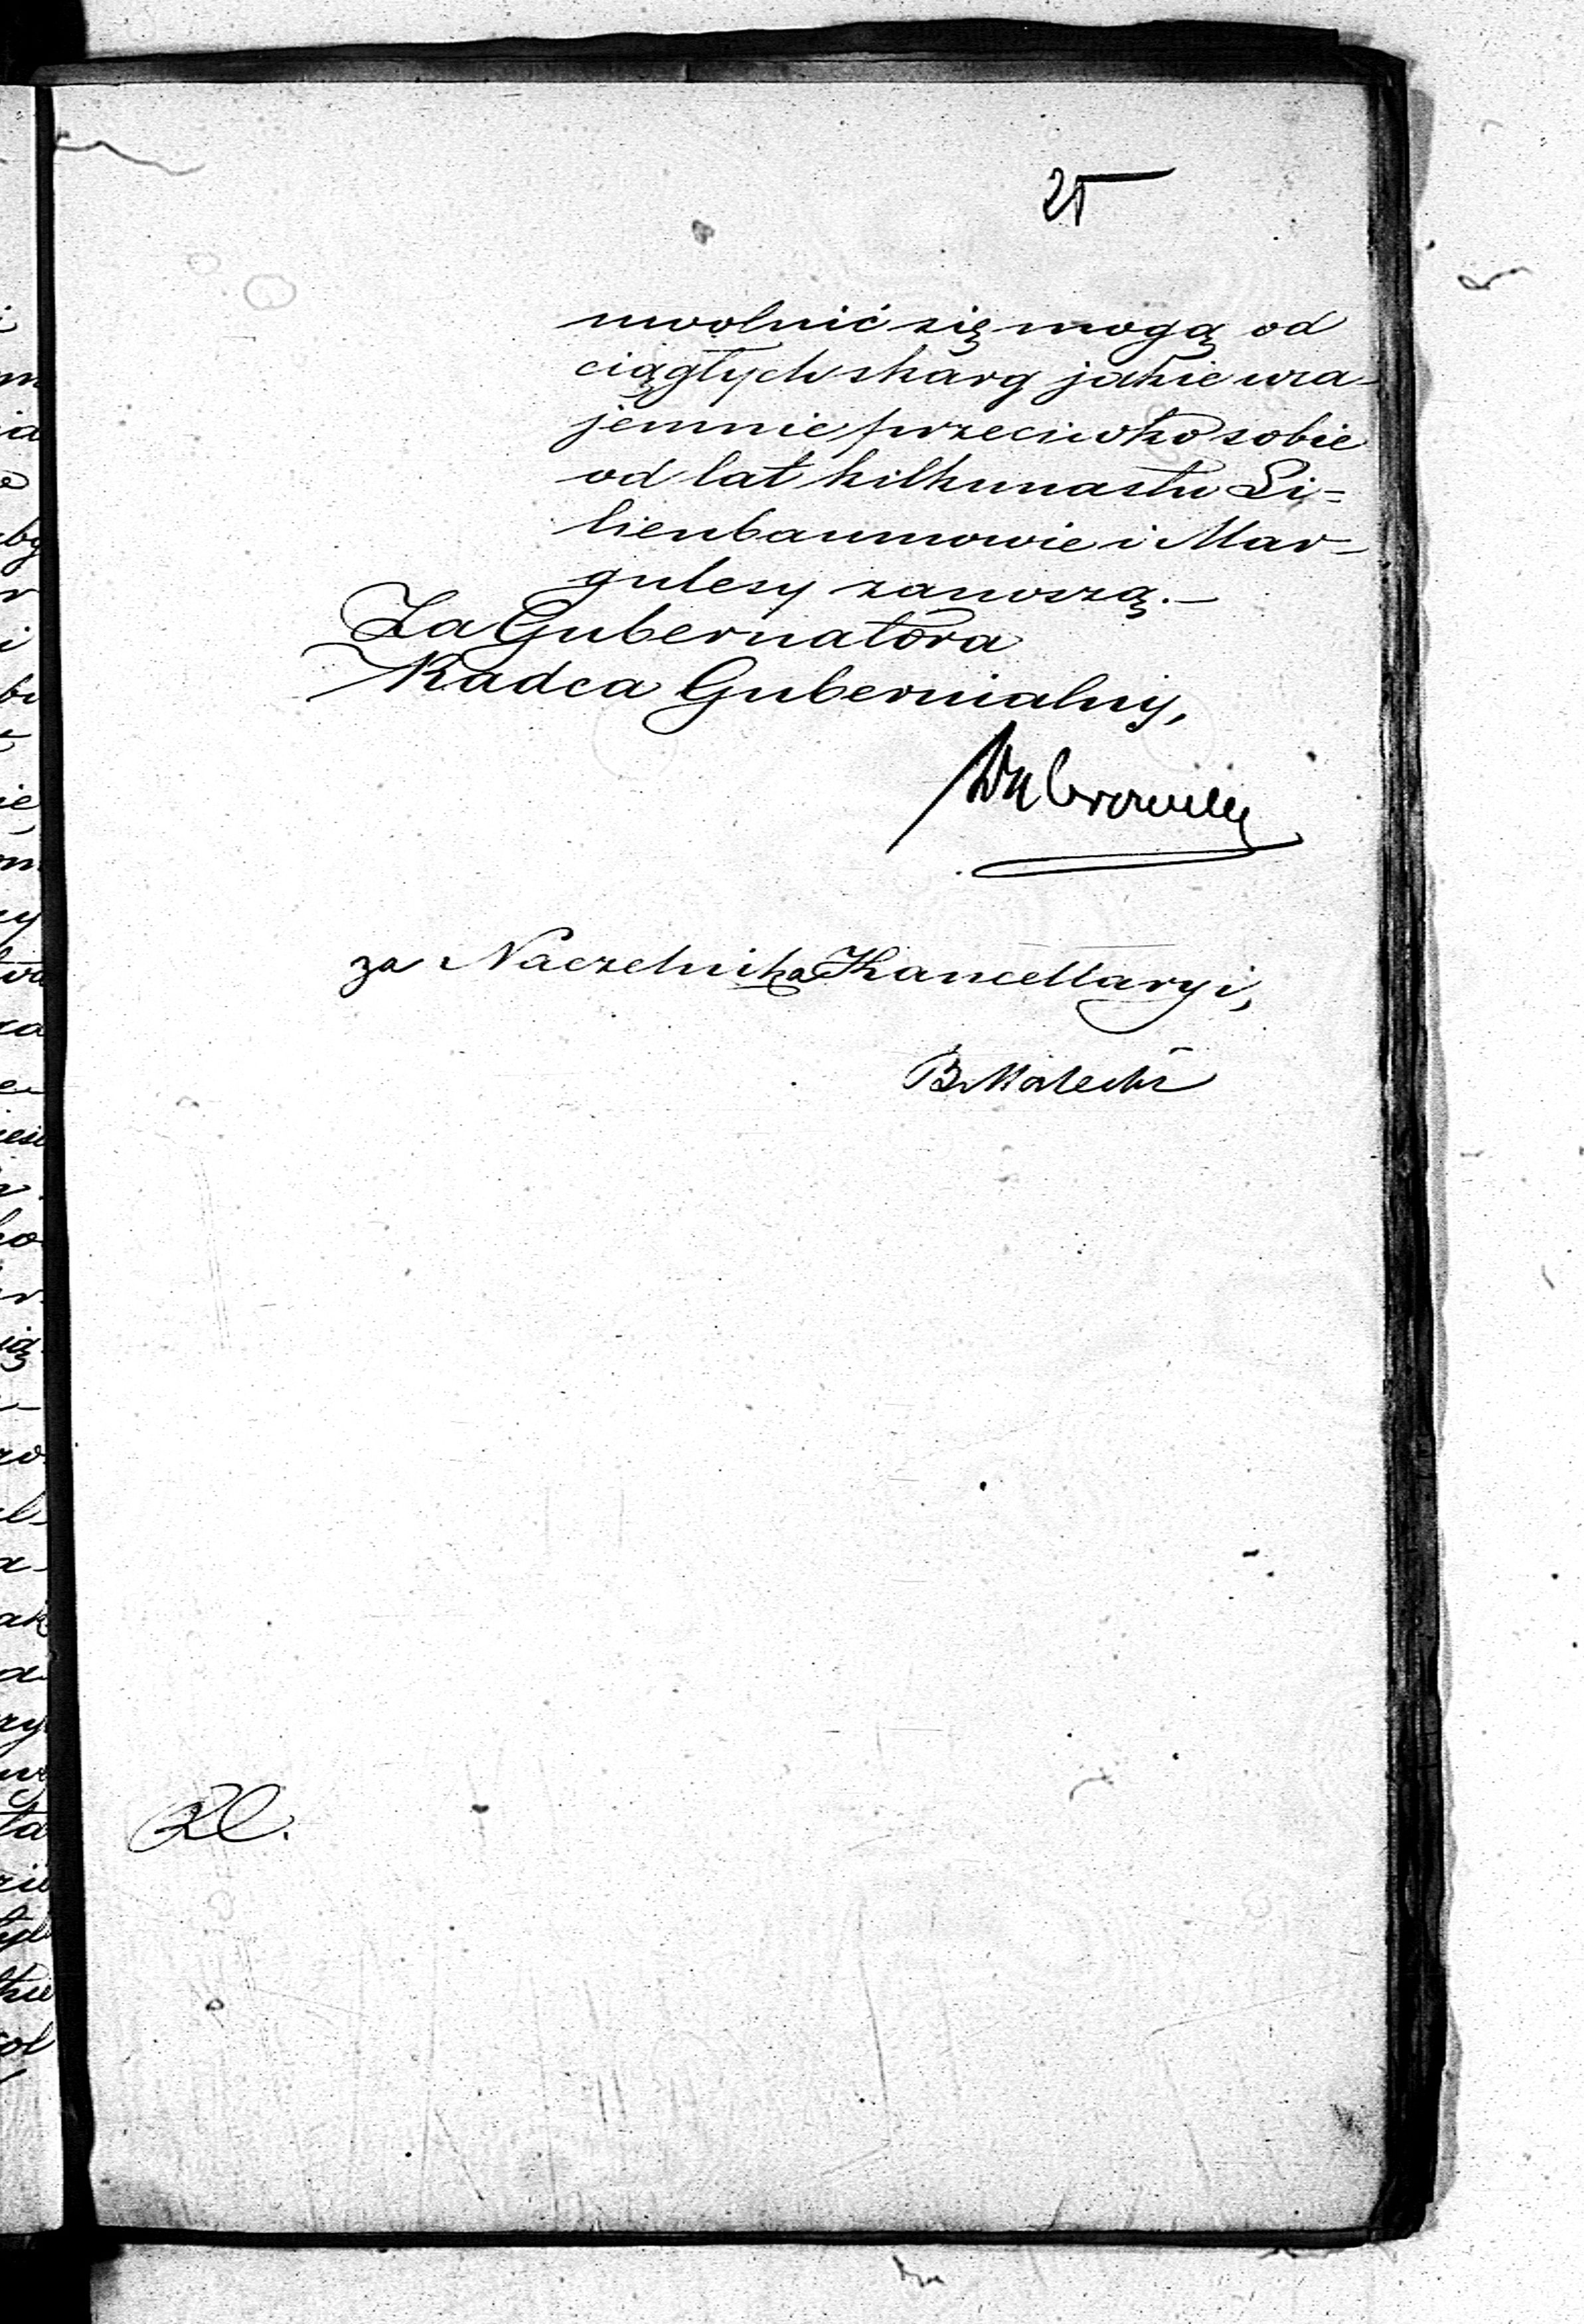 25
uwolnić się mogą od
ciągłych skarg jakie wza-
jemnie przeciwko sobie
od lat kilkunastu Li=
lienbaumowie i Mar-
gulesy zanoszą.-
Za Gubernatora
Radca Gubernialny,
za Naczelnika Kancellaryi,
B. Małecki